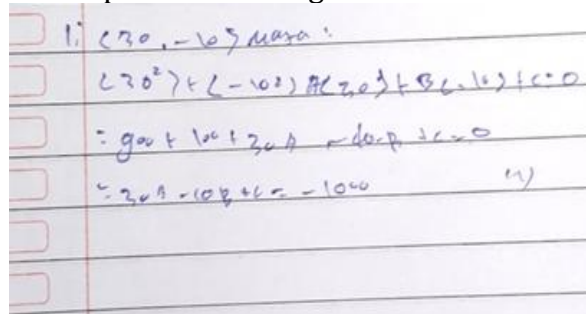 1. (30, -10) maka:
(30²) + (-10²) A(30) + B(-10) + C = 0
= 900 + 100 + 30A - 10B + C = 0
= 30A - 10B + C = -1000